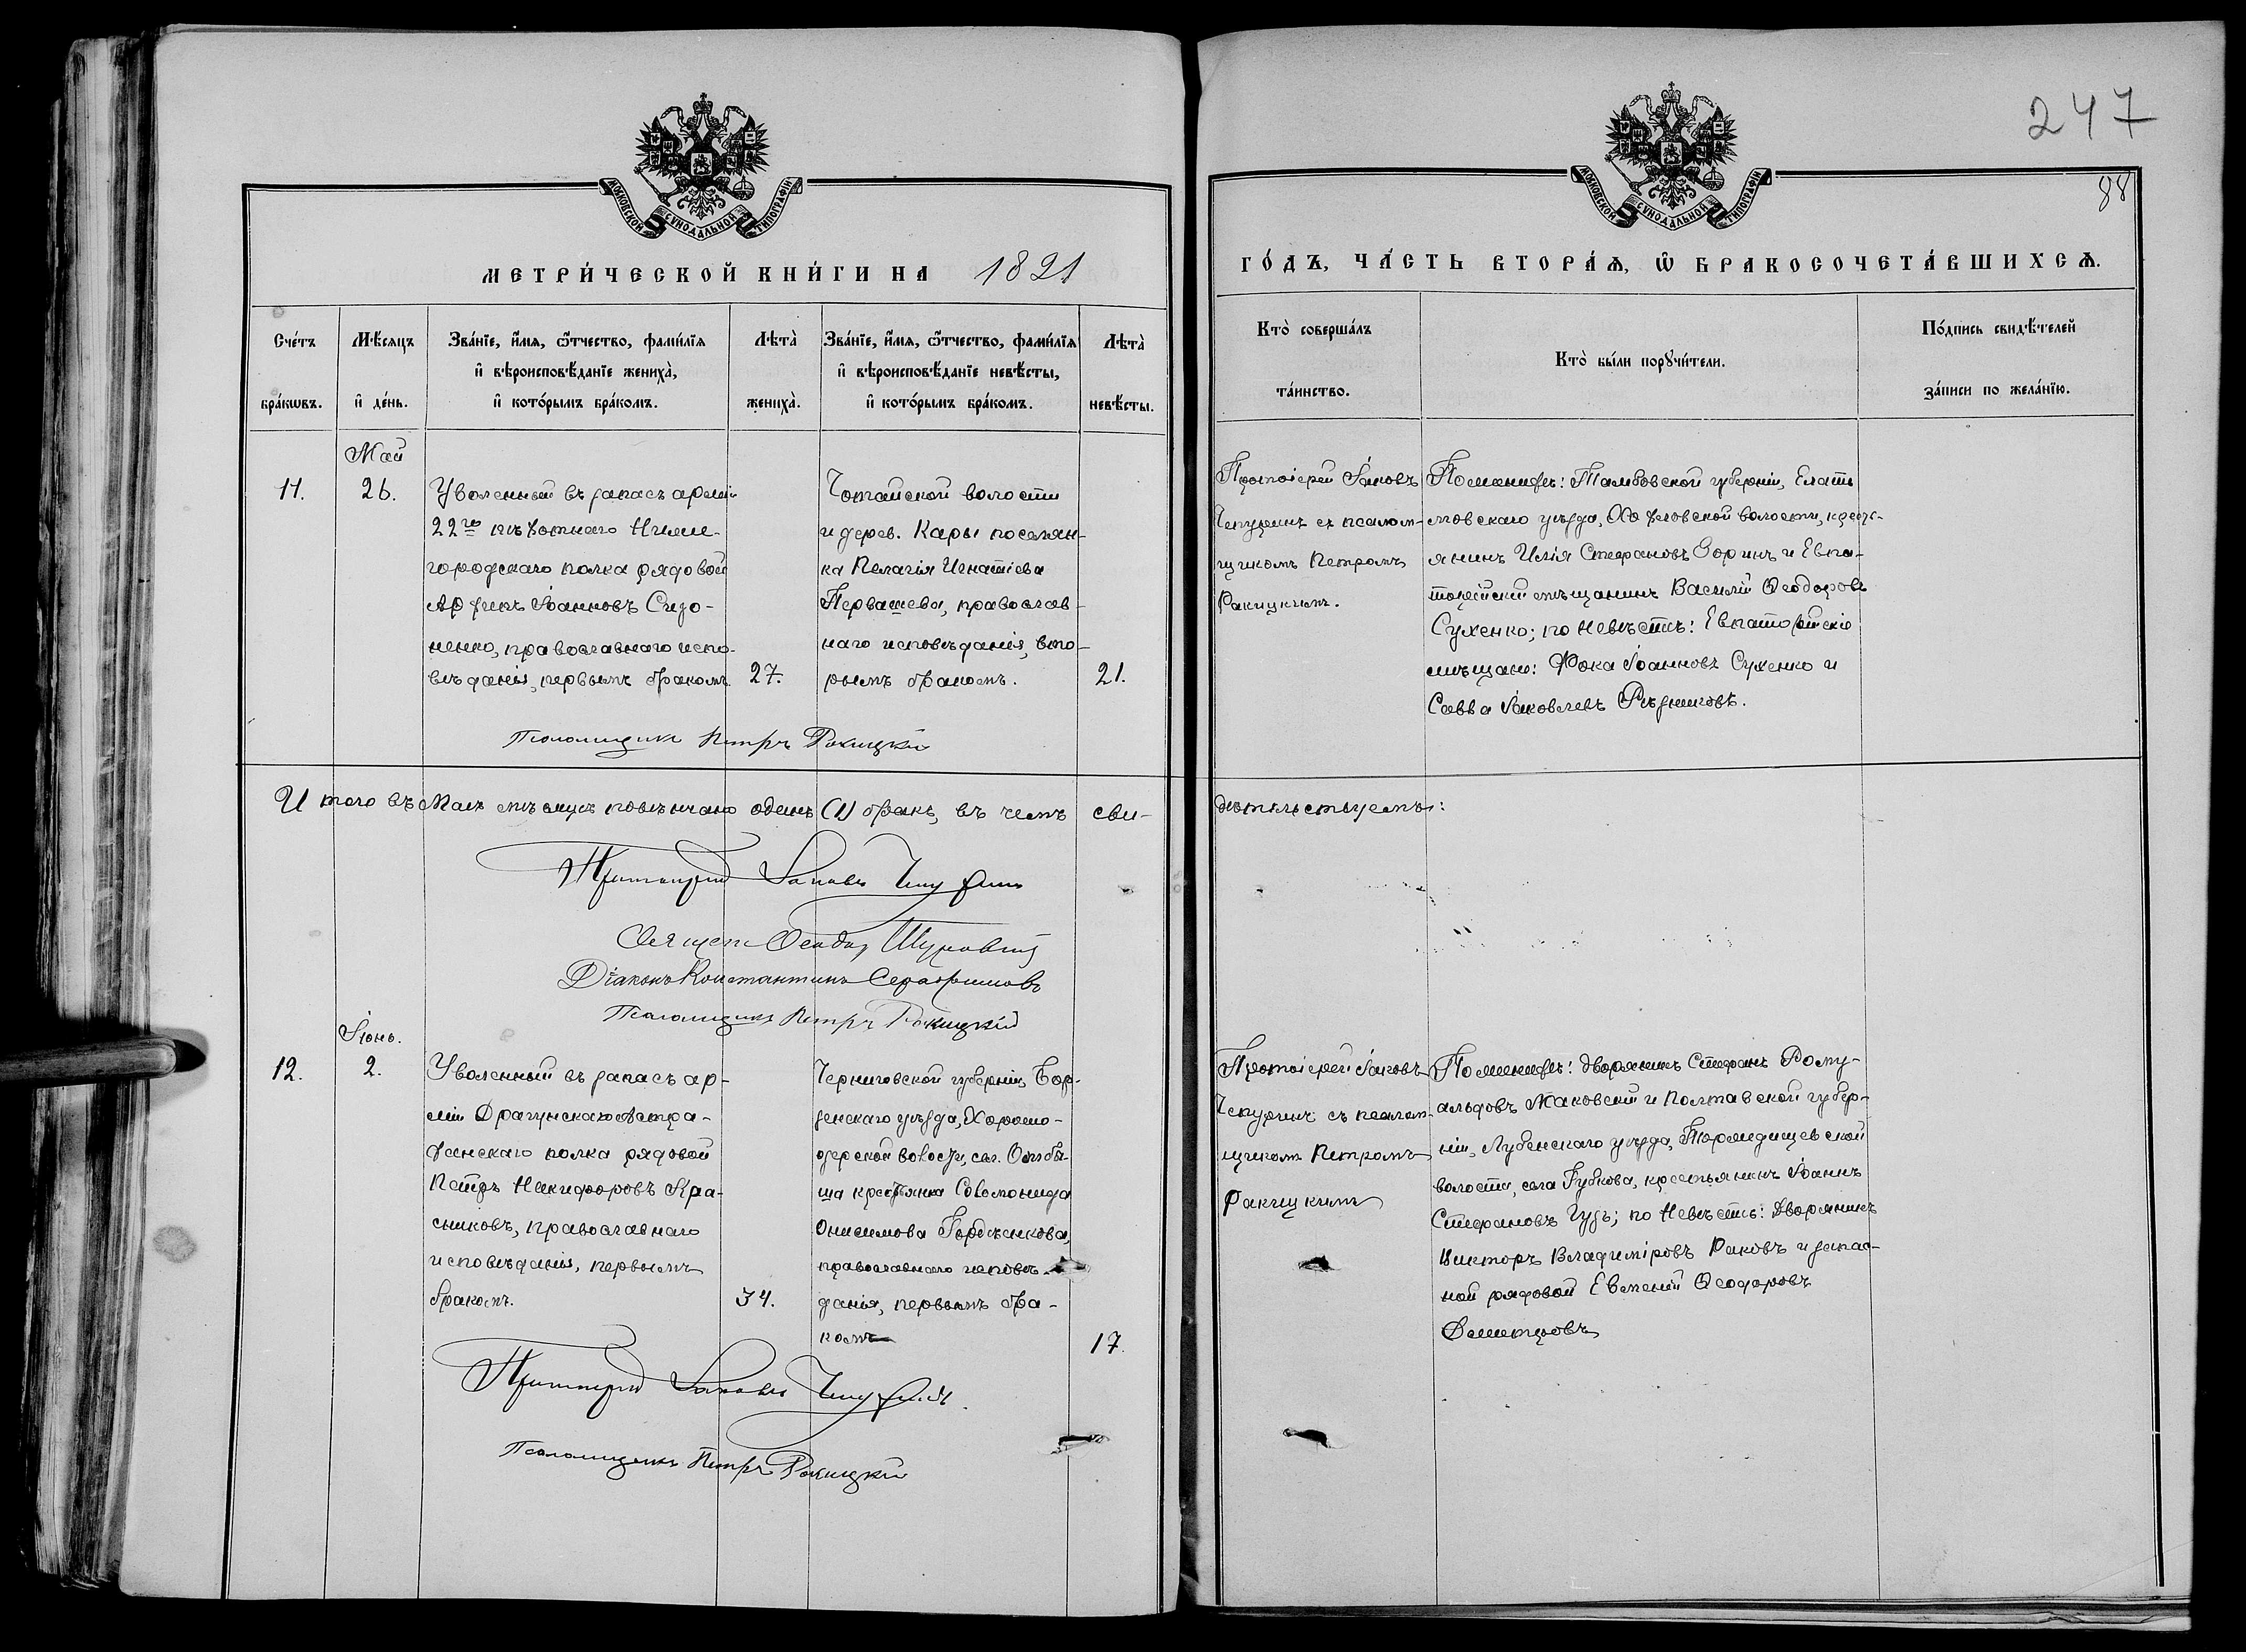 247
88
МОСКОВСКОЙ СѴНОДАЛЬНОЙ ТИПОГРАФІИ
МЕТРИ́ЧЕСКОЙ КНИ́ГИ НА 1891
Сче́тъ бра́кωвъ.
Мѣ́сяцъ и҆ де́нь.
Зва́нїе, и҆́мя, ѻ҆́тчество, фами́лїя
и҆ вѣроисповѣ́данїе жениха̀,
и҆ кото́рымъ бра́комъ.
Лѣта̀ жениха̀.
Зва́нїе, и҆́мя, ѻ҆́тчество, фами́лїя
и҆ вѣроисповѣ́данїе невѣ́сты,
и҆ кото́рымъ бра́комъ.
Лѣта̀ невѣ́сты.
Май
11.
26.
Уволенный въ запасъ арміи
22го пѣхотнаго Ниже-
городскаго полка рядовой
Іоанновъ Сидо-
ненко, православнаго испо-
вѣданія, первымъ бракомъ
27.
волости
и дерев. Кары поселян-
ка Пелагія Игнатіева
Первашева, православ-
наго исповѣданія, вто-
рымъ бракомъ.
21.
Псаломщикъ Петръ Ракицкій
Итого въ Маѣ мѣсяцѣ повѣнчано одинъ (1) бракъ, въ чемъ сви-
Протоіерей Іаковъ Чепуринъ
Священ. Ѳеодор
Діаконъ Константинъ Серафимовъ
Псаломщикъ Петръ Ракицкій
Іюнь.
12.
2.
Уволенный въ запасъ ар-
міи Драгунскаго Астра-
ханскаго полка рядовой
Петръ Никифоровъ Кра-
сниковъ, православнаго
исповѣданія, первымъ
бракомъ.
34.
Черниговской губерніи Бор-
зенскаго уѣзда, Хорошо-
озерской волости, сел.
крестьянка Соломонида
Онисимова
православнаго исповѣ-
данія, первымъ бра-
комъ
17.
Протоіерей Іаковъ Чепуринъ
Псаломщикъ Петръ Ракицкій
МОСКОВСКОЙ СѴНОДАЛЬНОЙ ТИПОГРАФІИ
ГО́ДЪ, ЧА́СТЬ ВТОРА́Я, Ѽ БРАКОСОЧЕТА́ВШИХСЯ.
Кто̀ соверша́лъ та́инство.
Кто̀ бы́ли порꙋчи́тели.
По́дпись свидѣ́телей за́писи по жела́нїю.
Протоіерей Іаковъ
Чепуринъ съ псалом-
щикомъ Петромъ
Ракицкимъ.
По женихѣ: Тамбовской губерніи, Елать
мовскаго уѣзда, волости, кресть-
янинъ Илія Стефановъ Зоринъ и Евпа-
торійскій мѣщанинъ Василій Ѳеодоровъ
Сухенко; по невѣстѣ: Евпаторійскіе
мѣщане: Фока Іоанновъ Сухенко и
Савва Іаковлевъ Рѣзниковъ.
дѣтельствуемъ:
Протоіерей Іаковъ
Чепуринъ съ псалом-
щикомъ Петромъ
Ракицкимъ
По женихѣ: дворянинъ Стефанъ Рому-
альдовъ Маковскій и Полтавской губер-
ніи, Лубенскаго уѣзда,
волости, села Губкова, крестьянинъ Іоаннъ
Стефановъ Гудь; по невѣстѣ: дворянинъ
Викторъ Владиміровъ Раковъ и запас-
ной рядовой Евменій Ѳеодоровъ
Деметровъ